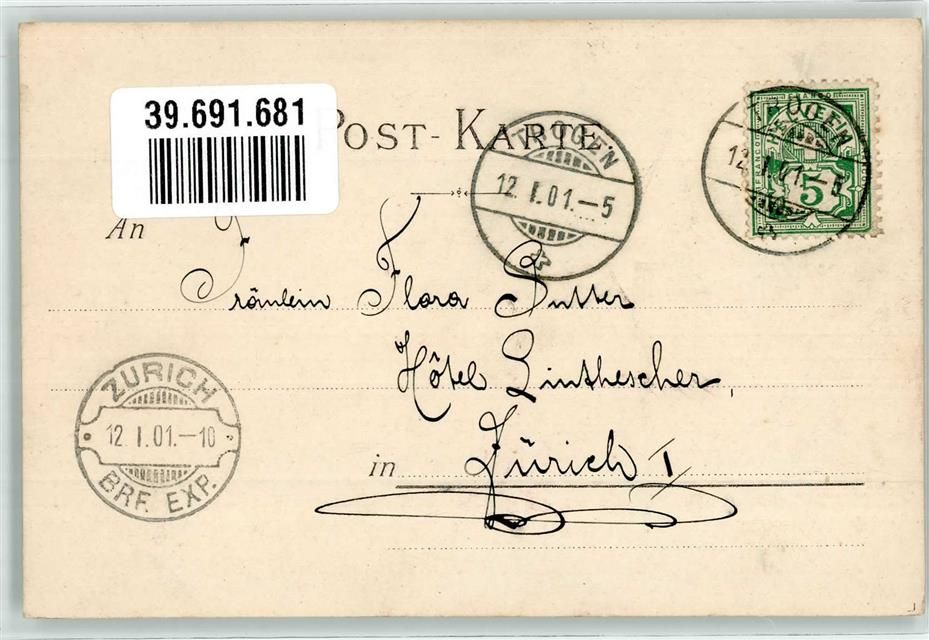 39.691.681
POST-KARTE.
TROGEN
12. I. 01.-5
TROGEN
12. I. 01.-5
FRANCO
5
An
Fräulein Flora Sutter
Hôtel Linthescher,
in Zürich I
ZÜRICH
12. I. 01.-10
BRF. EXP.